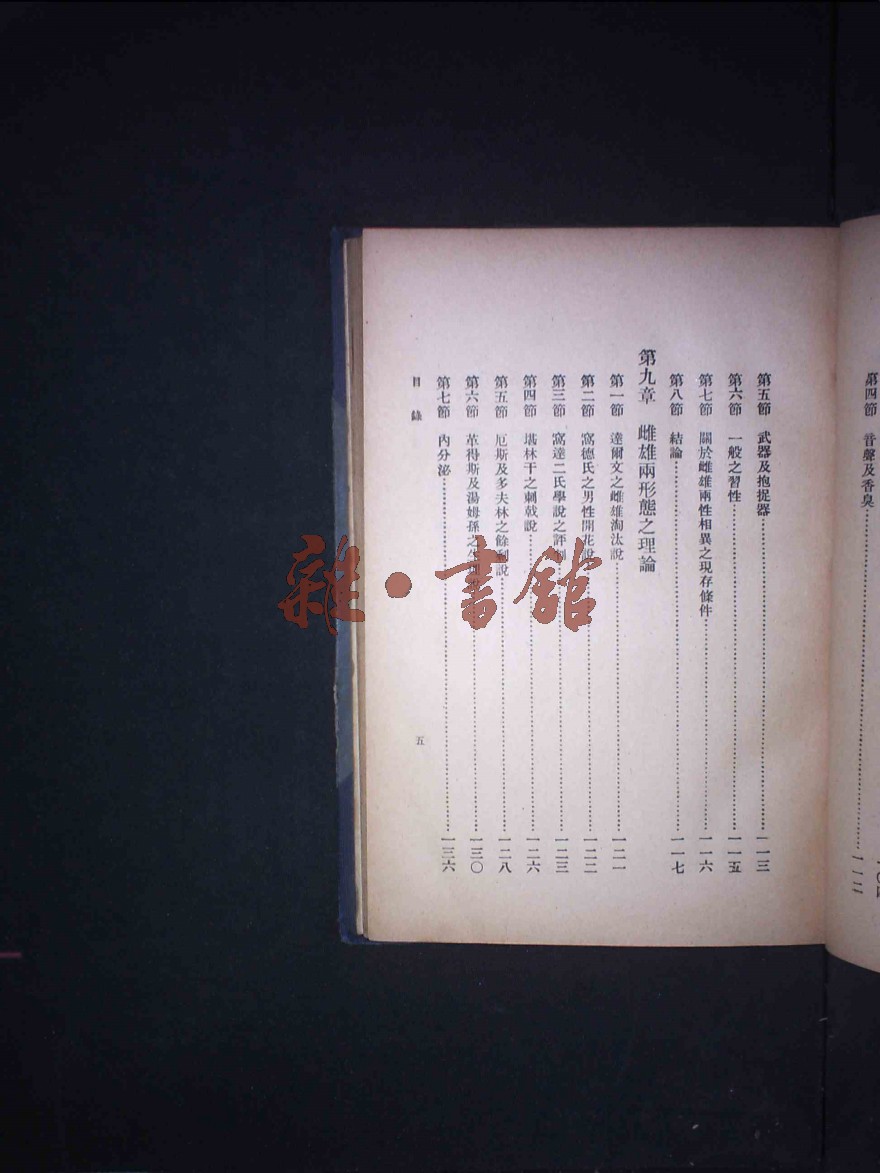 第四節　音聲及香臭……一一二
第五節　武器及抱捉器……一一三
第六節　一般之習性……一一五
第七節　關於雌雄兩性相異之現存條件……一一六
第八節　結論……一一七
第九章　雌雄兩形態之理論
第一節　達爾文之雌雄淘汰說……一二一
第二節　窩德氏之男性開花說……一二二
第三節　窩達二氏學說之評……一二三
第四節　堪林干之刺戟說……一二六
第五節　厄斯及多夫林之餘剩說……一二八
第六節　革得斯及湯姆孫之……一三〇
第七節　內分泌……一三六
目錄
五
雜·書館